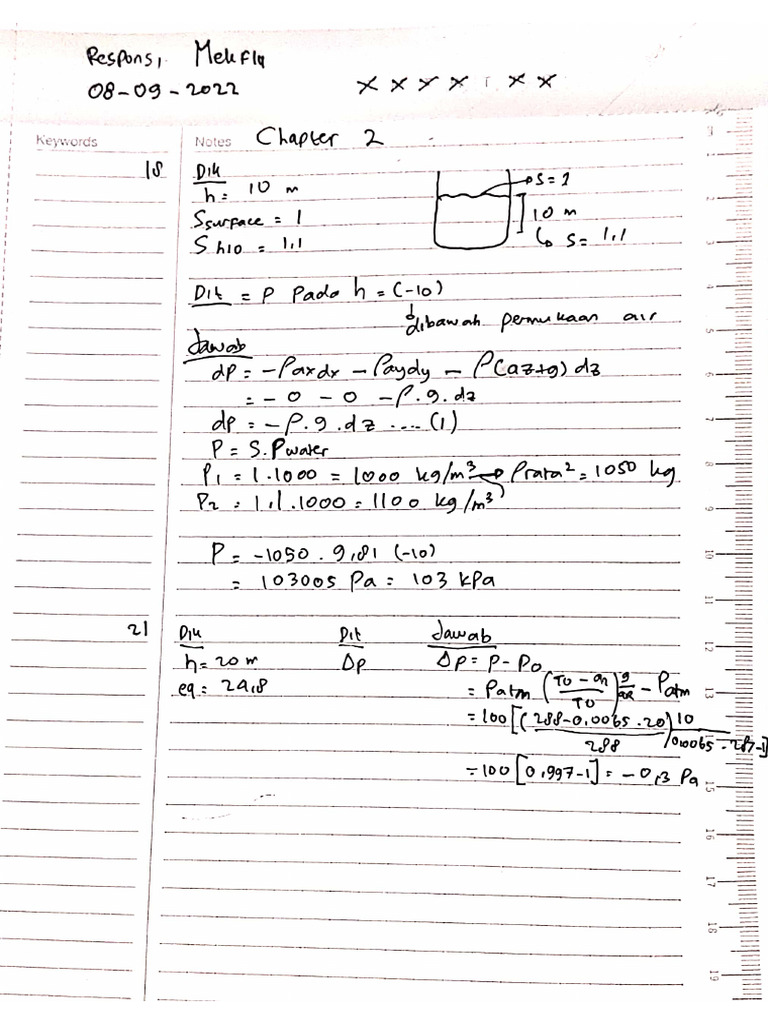 Responsi Mekflu
08-09-2022
x x x x x x
Keywords
Notes Chapter 2
18
Dik
h = 10 m
S surface = 1
S h10 = 1,1
S = 1
10 m
S = 1,1
Dit = P pada h = (-10)
dibawah permukaan air
Jawab
dP = -ρaxdx - ρaydy - ρ(az+g) dz
= - 0 - 0 - ρ.g.dz
dP = -ρ.g.dz .... (1)
ρ = S.ρwater
ρ1 = 1.1000 = 1000 kg/m³ → ρrata² = 1050 kg
ρ2 = 1,1.1000 = 1100 kg/m³
P = -1050 . 9,81 (-10)
= 103005 Pa = 103 kPa
21
Dik Dit Jawab
h = 20 m Δp Δp = P - Po
eq = 2.4,8 = Patm (To - ah / To) g/aR - Patm
= 100 [(288-0,0065.20 / 288) 10/0,0065.287 -1]
= 100 [0,997-1] = -0,3 Pa
1
2
3
4
5
6
7
8
9
10
11
12
13
15
16
17
18
19